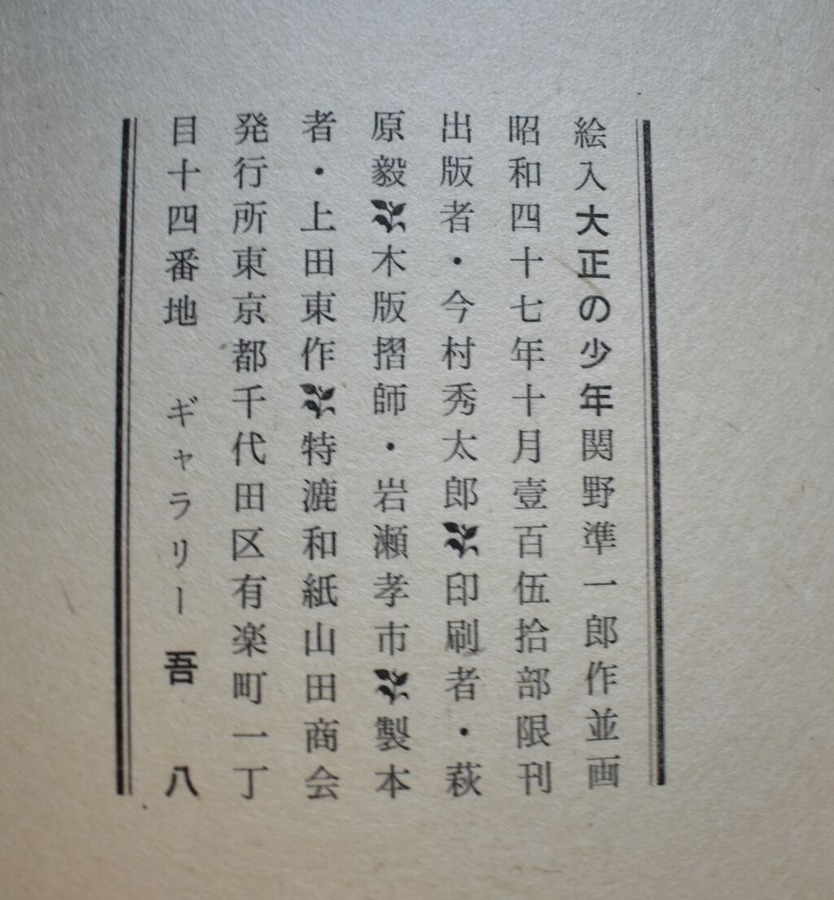 絵入大正の少年関野準一郎作並画
昭和四十七年十月壹百伍拾部限刊
出版者・今村秀太郎❦印刷者・萩
原毅❦木版摺師・岩瀬孝市❦製本
者・上田東作❦特漉和紙山田商会
発行所東京都千代田区有楽町一丁
目十四番地 ギャラリー吾 八